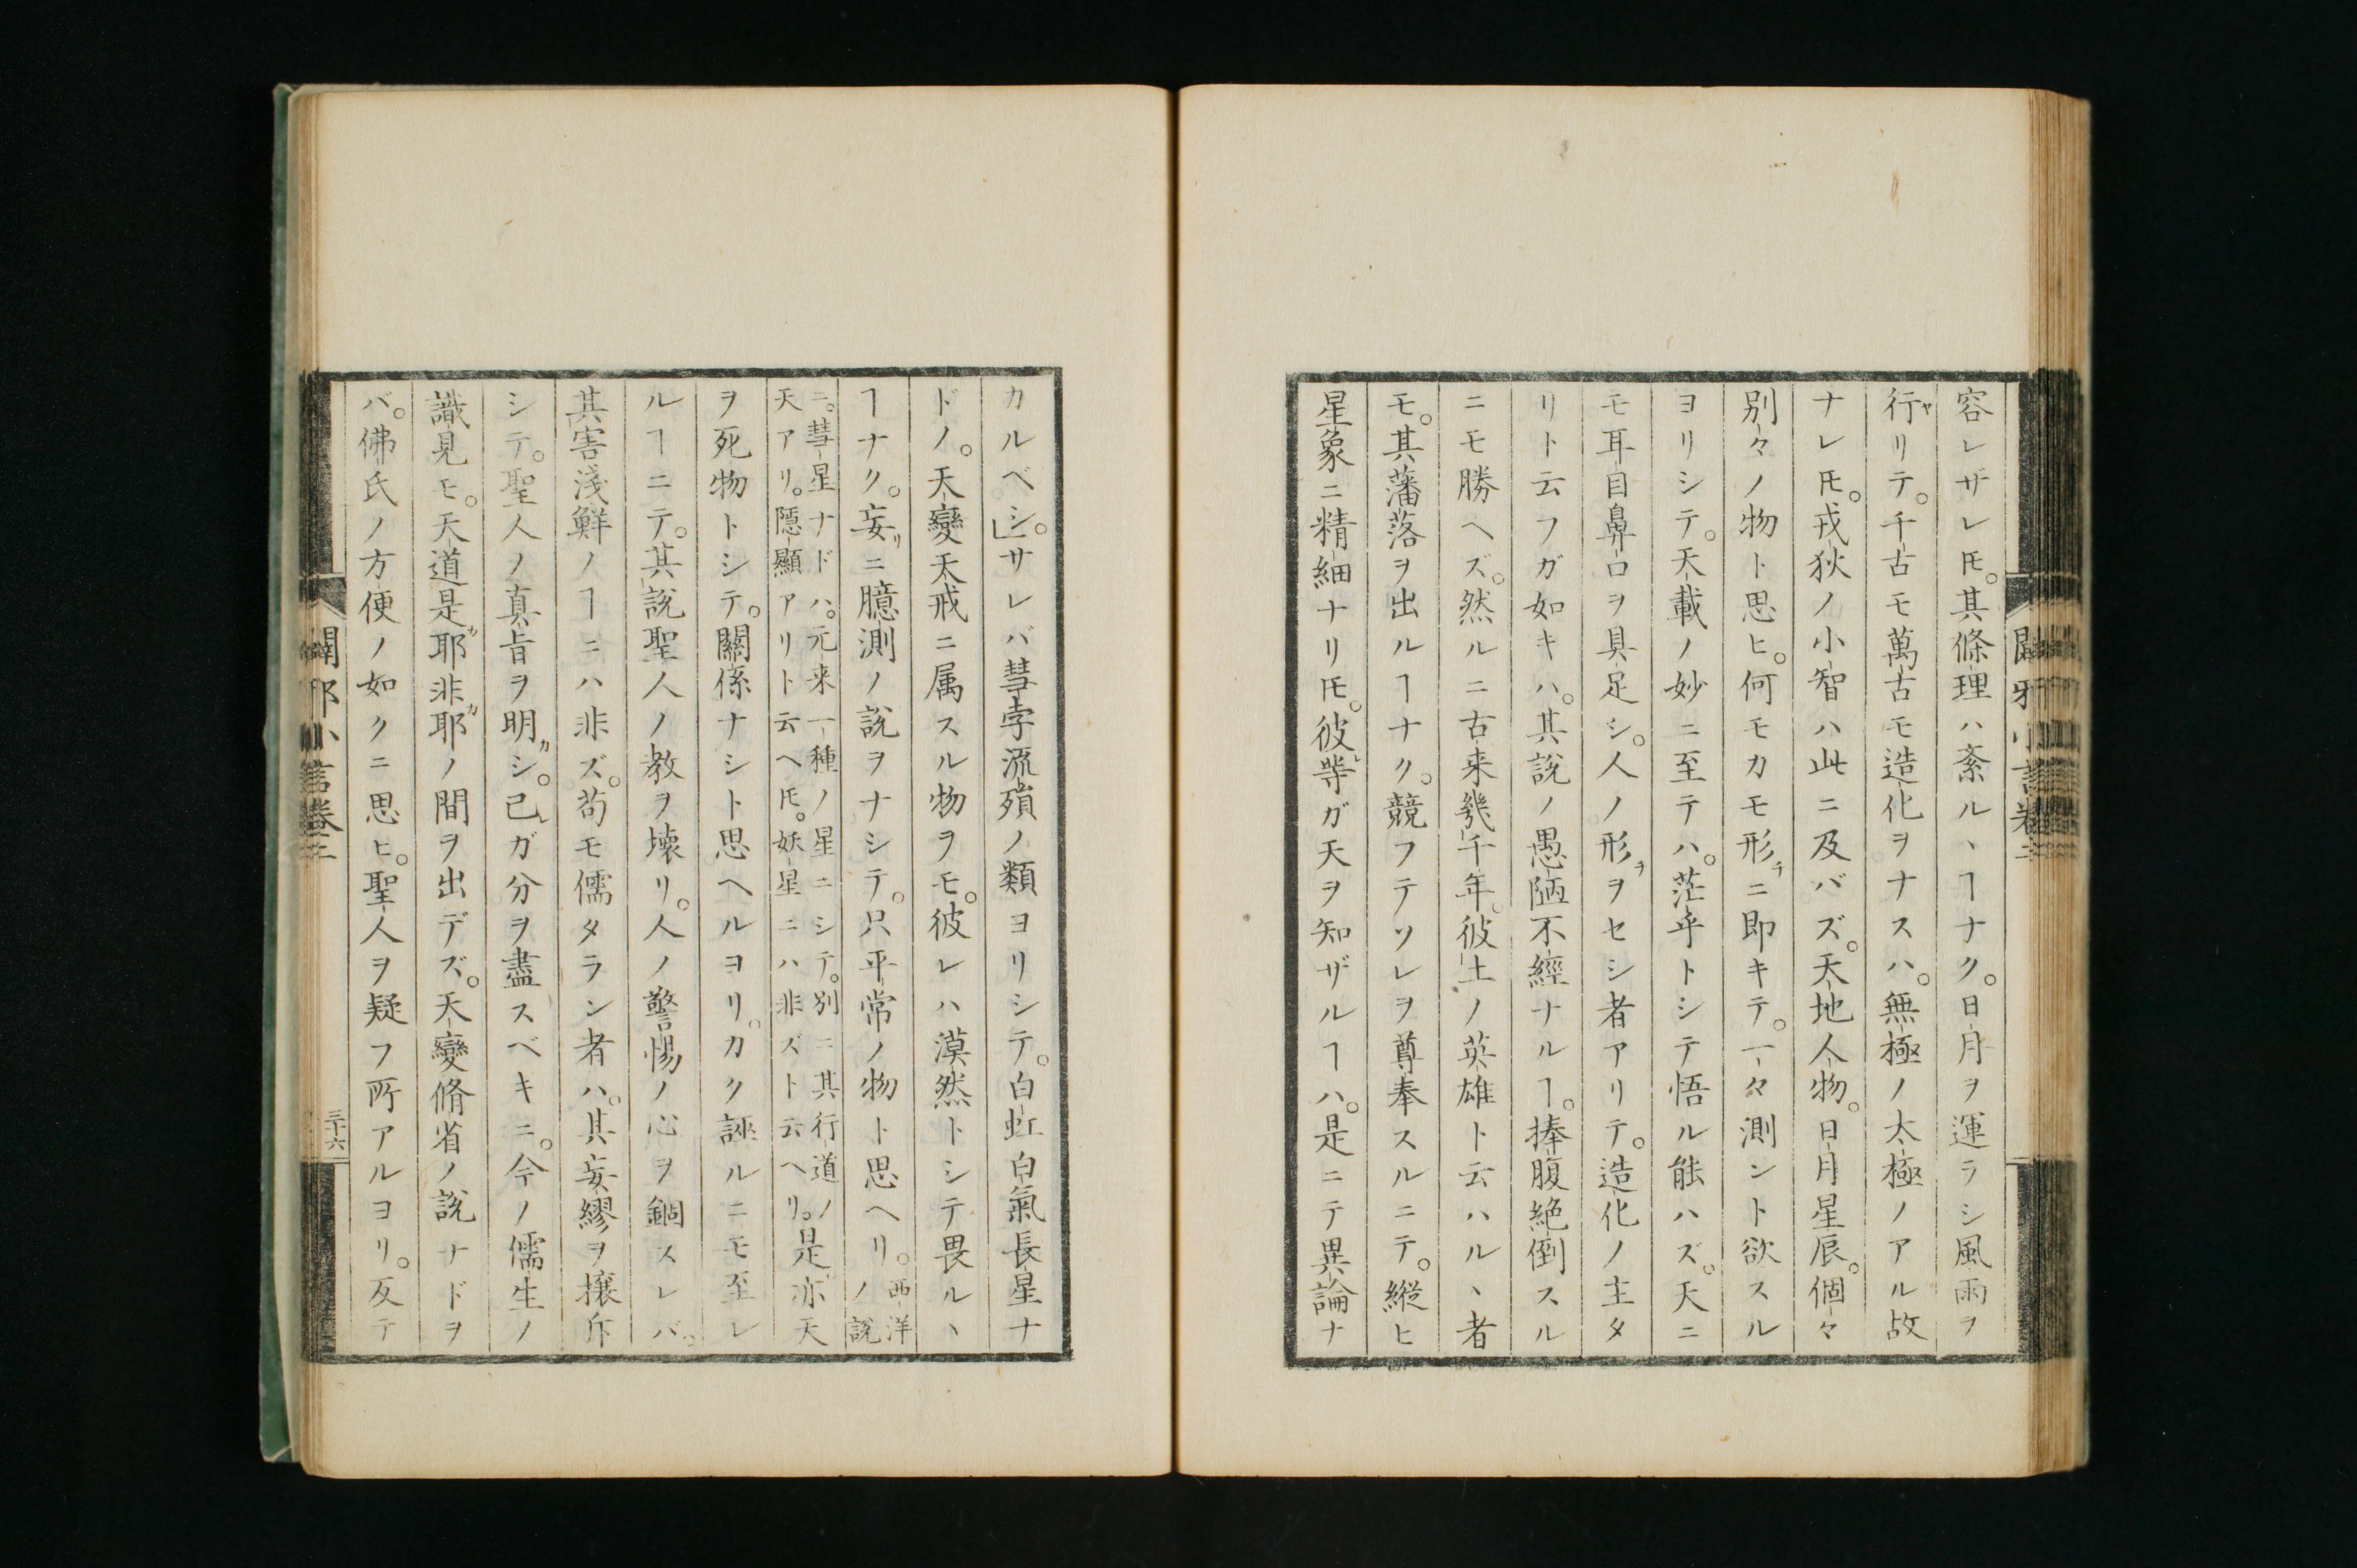 容レザレ𪜈。其條理ハ紊ル、ヿナク。日月ヲ運ラシ風雨ヲ
行ヤリテ。千古モ萬古モ造化ヲナスハ。無極ノ太極ノアル故
ナレ𪜈。戎狄ノ小智ハ此ニ及バズ。天地人物。日月星辰。個々
別々ノ物ト思ヒ。何モカモ形チニ即キテ。一々測ント欲スル
ヨリシテ。天載ノ妙ニ至テハ。茫乎トシテ悟ル能ハズ。天ニ
モ耳目鼻口ヲ具足シ。人ノ形ヲセシ者アリテ。造化ノ主タ
リト云フガ如キハ。其說ノ愚陋不經ナルヿ。捧腹絶倒スル
ニモ勝ヘズ。然ルニ古来幾千年。彼土ノ英雄ト云ハル、者
モ。其藩落ヲ出ルヿナク。競フテソレヲ尊奉スルニテ。縱ヒ
星象ニ精細ナリ𪜈。彼等ガ天ヲ知ザルヿハ。是ニテ異論ナ
カルベシ。」サレバ彗孛流殞ノ類ヨリシテ。白虹白氣長星ナ
ドノ。天變天戒ニ属スル物ヲモ。彼レハ漠然トシテ畏ル、
ヿナク。妄リニ臆測ノ說ヲナシテ。只平常ノ物ト思ヘリ。西洋ノ說
ニ。彗星ナドハ。元来一種ノ星ニシテ。別ニ其行道ノ
天アリ。隱顯アリト云ヘ𪜈。妖星ニハ非ズト云ヘリ。是亦天
ヲ死物トシテ。關係ナシト思ヘルヨリ。カク誣ルニモ至レ
ルヿニテ。其說聖人ノ教ヲ壊リ。人ノ警惕ノ心ヲ錮スレバ。
其害淺鮮ノヿニハ非ズ。苟モ儒タラン者ハ。其妄繆ヲ攘斥
シテ。聖人ノ真旨ヲ明カシ。己レガ分ヲ盡スベキニ。今ノ儒生ノ
識見モ。天道是カ耶非カ耶ノ間ヲ出デズ。天變脩省ノ說ナドヲ
バ。佛氏ノ方便ノ如クニ思ヒ。聖人ヲ疑フ所アルヨリ。反テ
闢邪小言卷二
三十六